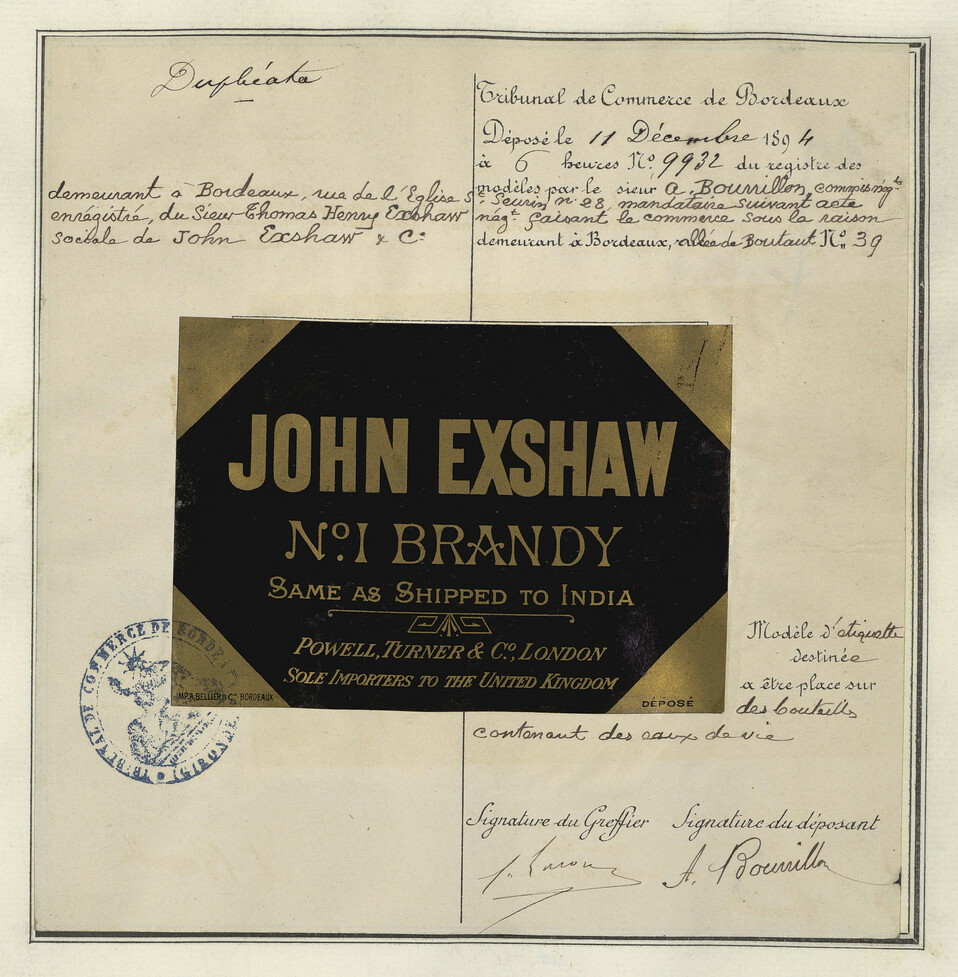 Duplicata
Tribunal de Commerce de Bordeaux
Déposé le 11 Décembre 1894
à 6 heures No. 9932 du registre des
modèles par le sieur A. Bourrillon, commis négt.
demeurant à Bordeaux, rue de l'Eglise St. Seurin, n° 28, mandataire suivant acte
enrégistré, du Sieur Thomas Henry Exshaw négt. faisant le commerce sous la raison
sociale de John Exshaw & Co. demeurant à Bordeaux, allée de Boutaut No. 39
JOHN EXSHAW
No. 1 BRANDY
SAME AS SHIPPED TO INDIA
POWELL, TURNER & Co., LONDON
SOLE IMPORTERS TO THE UNITED KINGDOM
IMP. A. BELLIER & Cie. BORDEAUX
DÉPOSÉ
TRIBUNAL DE COMMERCE DE BORDEAUX
(GIRONDE)
Modèle d'étiquette
destinée
a être place sur
des bouteilles
contenant des eaux de vie
Signature du Greffier Signature du déposant
A. Bourrillon